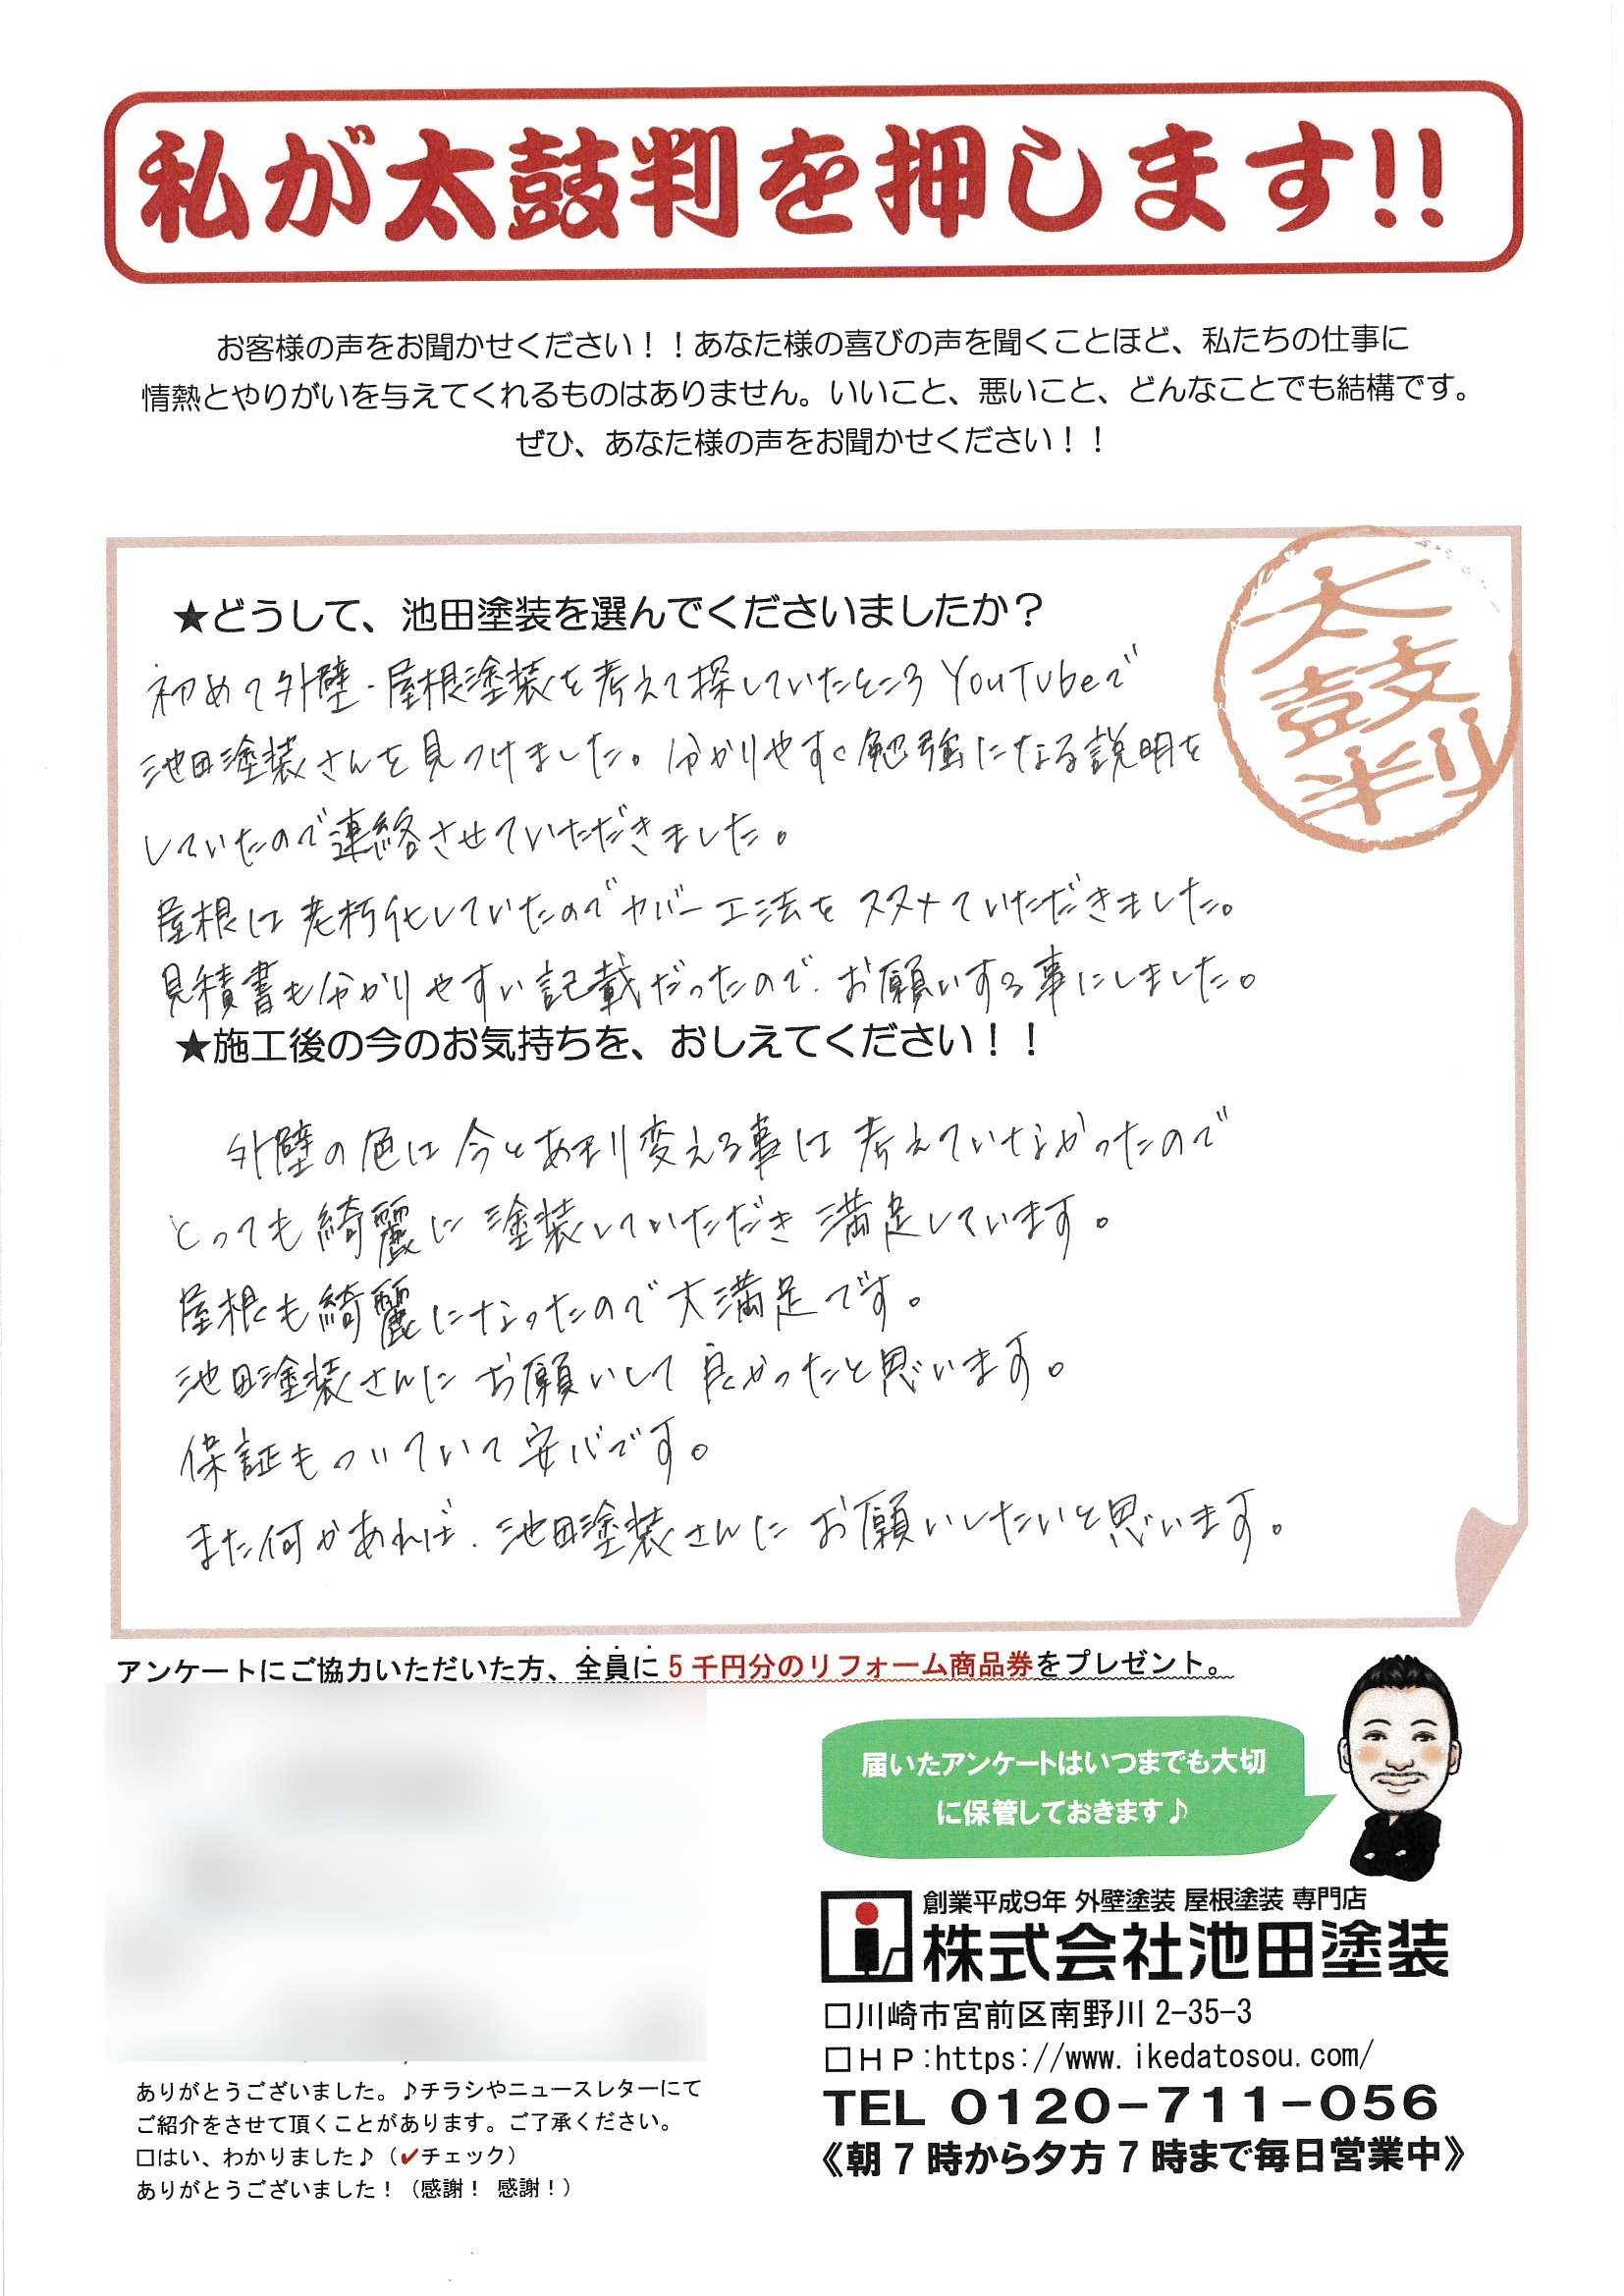 私が太鼓判を押します!!
お客様の声をお聞かせください！！あなた様の喜びの声を聞くことほど、私たちの仕事に
情熱とやりがいを与えてくれるものはありません。いいこと、悪いこと、どんなことでも結構です。
ぜひ、あなた様の声をお聞かせください！！
太鼓判
★どうして、池田塗装を選んでくださいましたか？
初めて外壁・屋根塗装を考えて探していたところYouTubeで
池田塗装さんを見つけました。分かりやすく勉強になる説明を
していたので連絡させていただきました。
屋根は老朽化していたのでカバー工法をススメていただきました。
見積書も分かりやすい記載だったので、お願いする事にしました。
★施工後の今のお気持ちを、おしえてください！！
外壁の色は今とあまり変える事は考えていなかったので
とっても綺麗に塗装していただき満足しています。
屋根も綺麗になったので大満足です。
池田塗装さんにお願いして良かったと思います。
保証もついていて安心です。
また何かあれば、池田塗装さんにお願いしたいと思います。
アンケートにご協力いただいた方、全員に5千円分のリフォーム商品券をプレゼント。
届いたアンケートはいつまでも大切
に保管しておきます♪
創業平成9年 外壁塗装 屋根塗装 専門店
株式会社池田塗装
□川崎市宮前区南野川2-35-3
□ＨＰ:https://www.ikedatosou.com/
TEL 0120-711-056
《朝7時から夕方7時まで毎日営業中》
ありがとうございました。♪チラシやニュースレターにて
ご紹介をさせて頂くことがあります。ご了承ください。
□はい、わかりました♪（✔チェック）
ありがとうございました！（感謝！ 感謝！）